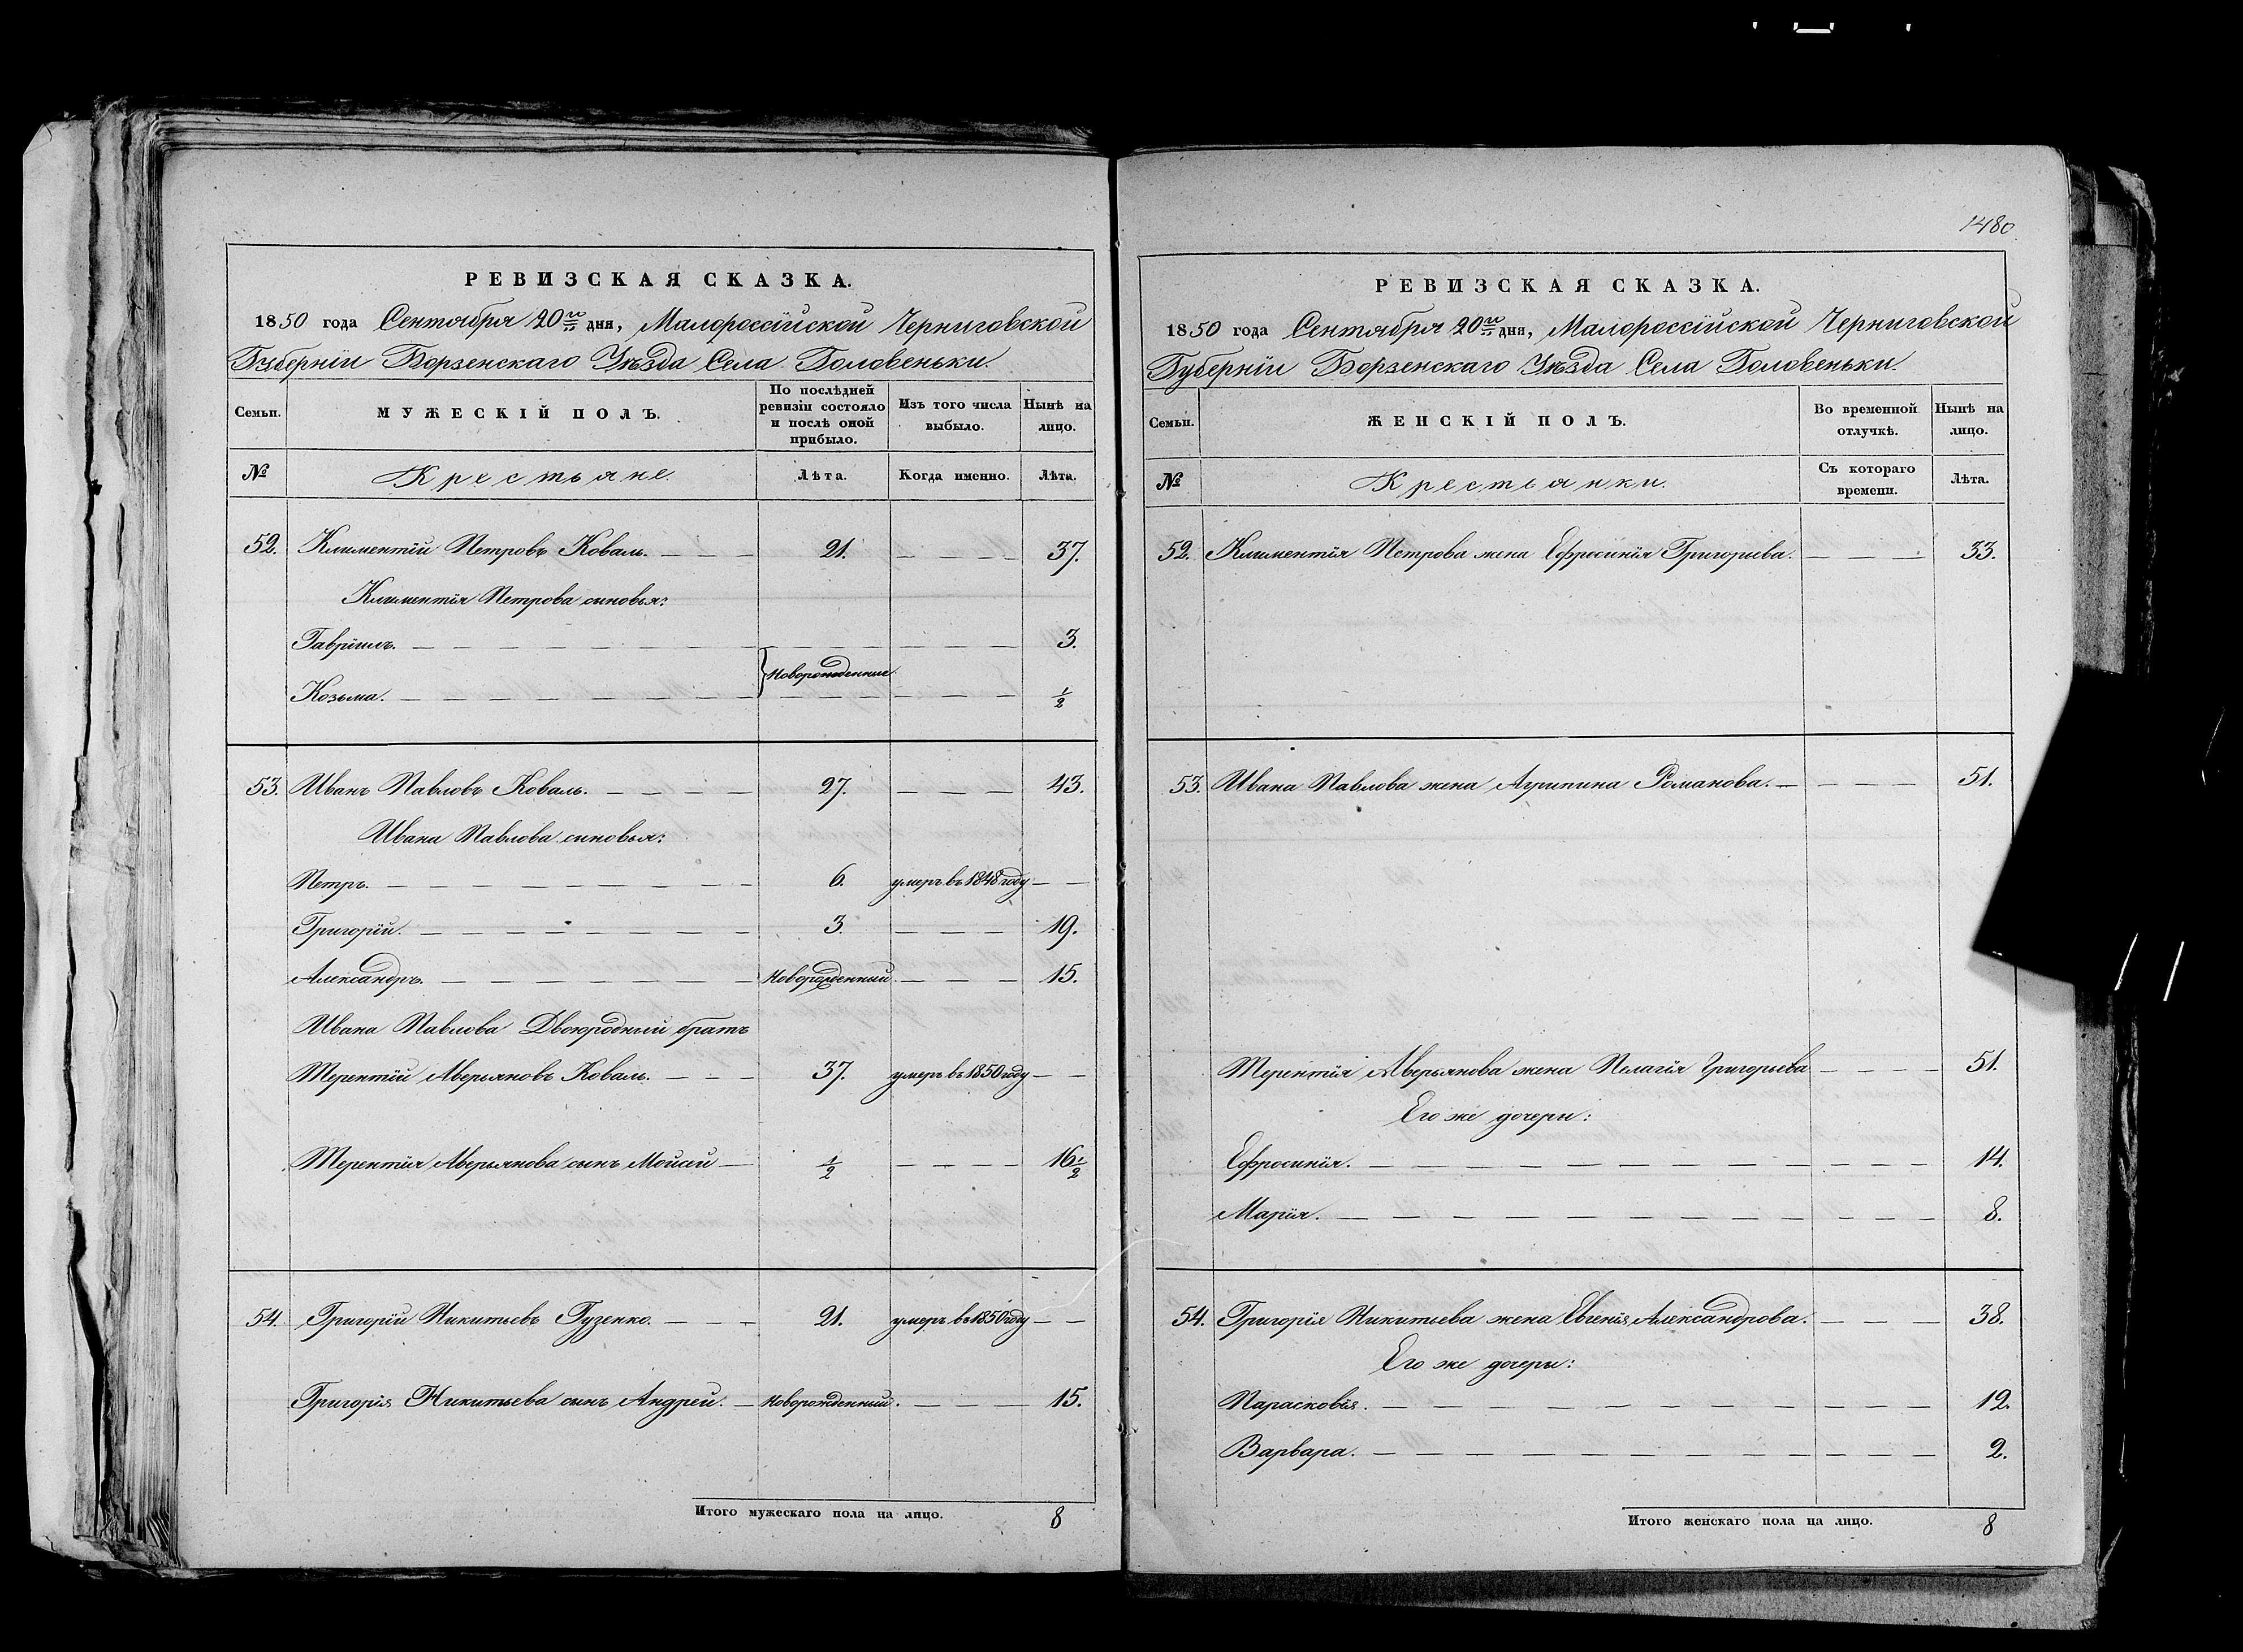 РЕВИЗСКАЯ СКАЗКА.
1850 года Сентября 20го дня, Малороссійской Черниговской
Губерніи Борзенскаго Уѣзда Села Головеньки.
Семьи.
МУЖЕСКІЙ ПОЛЪ.
По послѣдней ревизіи состояло и послѣ оной прибыло.
Изъ того числа выбыло.
Нынѣ на лицо.
№
Крестьяне.
Лѣта.
Когда именно.
Лѣта.
52. Климентій Петровъ Коваль. — — — 21. — — — — 37.
Климентія Петрова сыновья:
Гавріилъ. — — — 3.
Новорожденные
Козьма. — — — 1/2
53. Иванъ Павловъ Коваль. — — — — 27. — — — 43.
Ивана Павлова сыновья:
Петръ. — — — 6. умеръ въ 1848 году — —
Григорій. — — — 3. — — — 19.
Александръ. — — — Новорожденный. — — — 15.
Ивана Павлова Двоюродный братъ
Терентій Аверьяновъ Коваль. — — — 37. умеръ въ 1850 году — —
Терентія Аверьянова сынъ Мойсей — 1/2 — — — — 16 1/2
54. Григорій Никитьевъ Гузенко. — — — 21. умеръ въ 1850 году — —
Григорія Никитьева сынъ Андрей. — Новорожденный. — — — 15.
Итого мужескаго пола на лицо. 8
1480
РЕВИЗСКАЯ СКАЗКА.
1850 года Сентября 20го дня, Малороссійской Черниговской
Губерніи Борзенскаго Уѣзда Села Головеньки.
Семьи.
ЖЕНСКІЙ ПОЛЪ.
Во временной отлучкѣ.
Нынѣ на лицо.
№
Крестьянки.
Съ котораго времени.
Лѣта.
52. Климентія Петрова жена Ефросинія Григорьева. — — — 33.
53. Ивана Павлова жена Агрипина Романова. — — — — 51.
Терентія Аверьянова жена Пелагія Григорьева — — — — 51.
Его же дочери:
Ефросинія. — — — 14.
Марія. — — — 8.
54. Григорія Никитьева жена Евгенія Александрова. — — — 38.
Его же дочери:
Парасковія. — — — 12.
Варвара. — — — 2.
Итого женскаго пола на лицо. 8